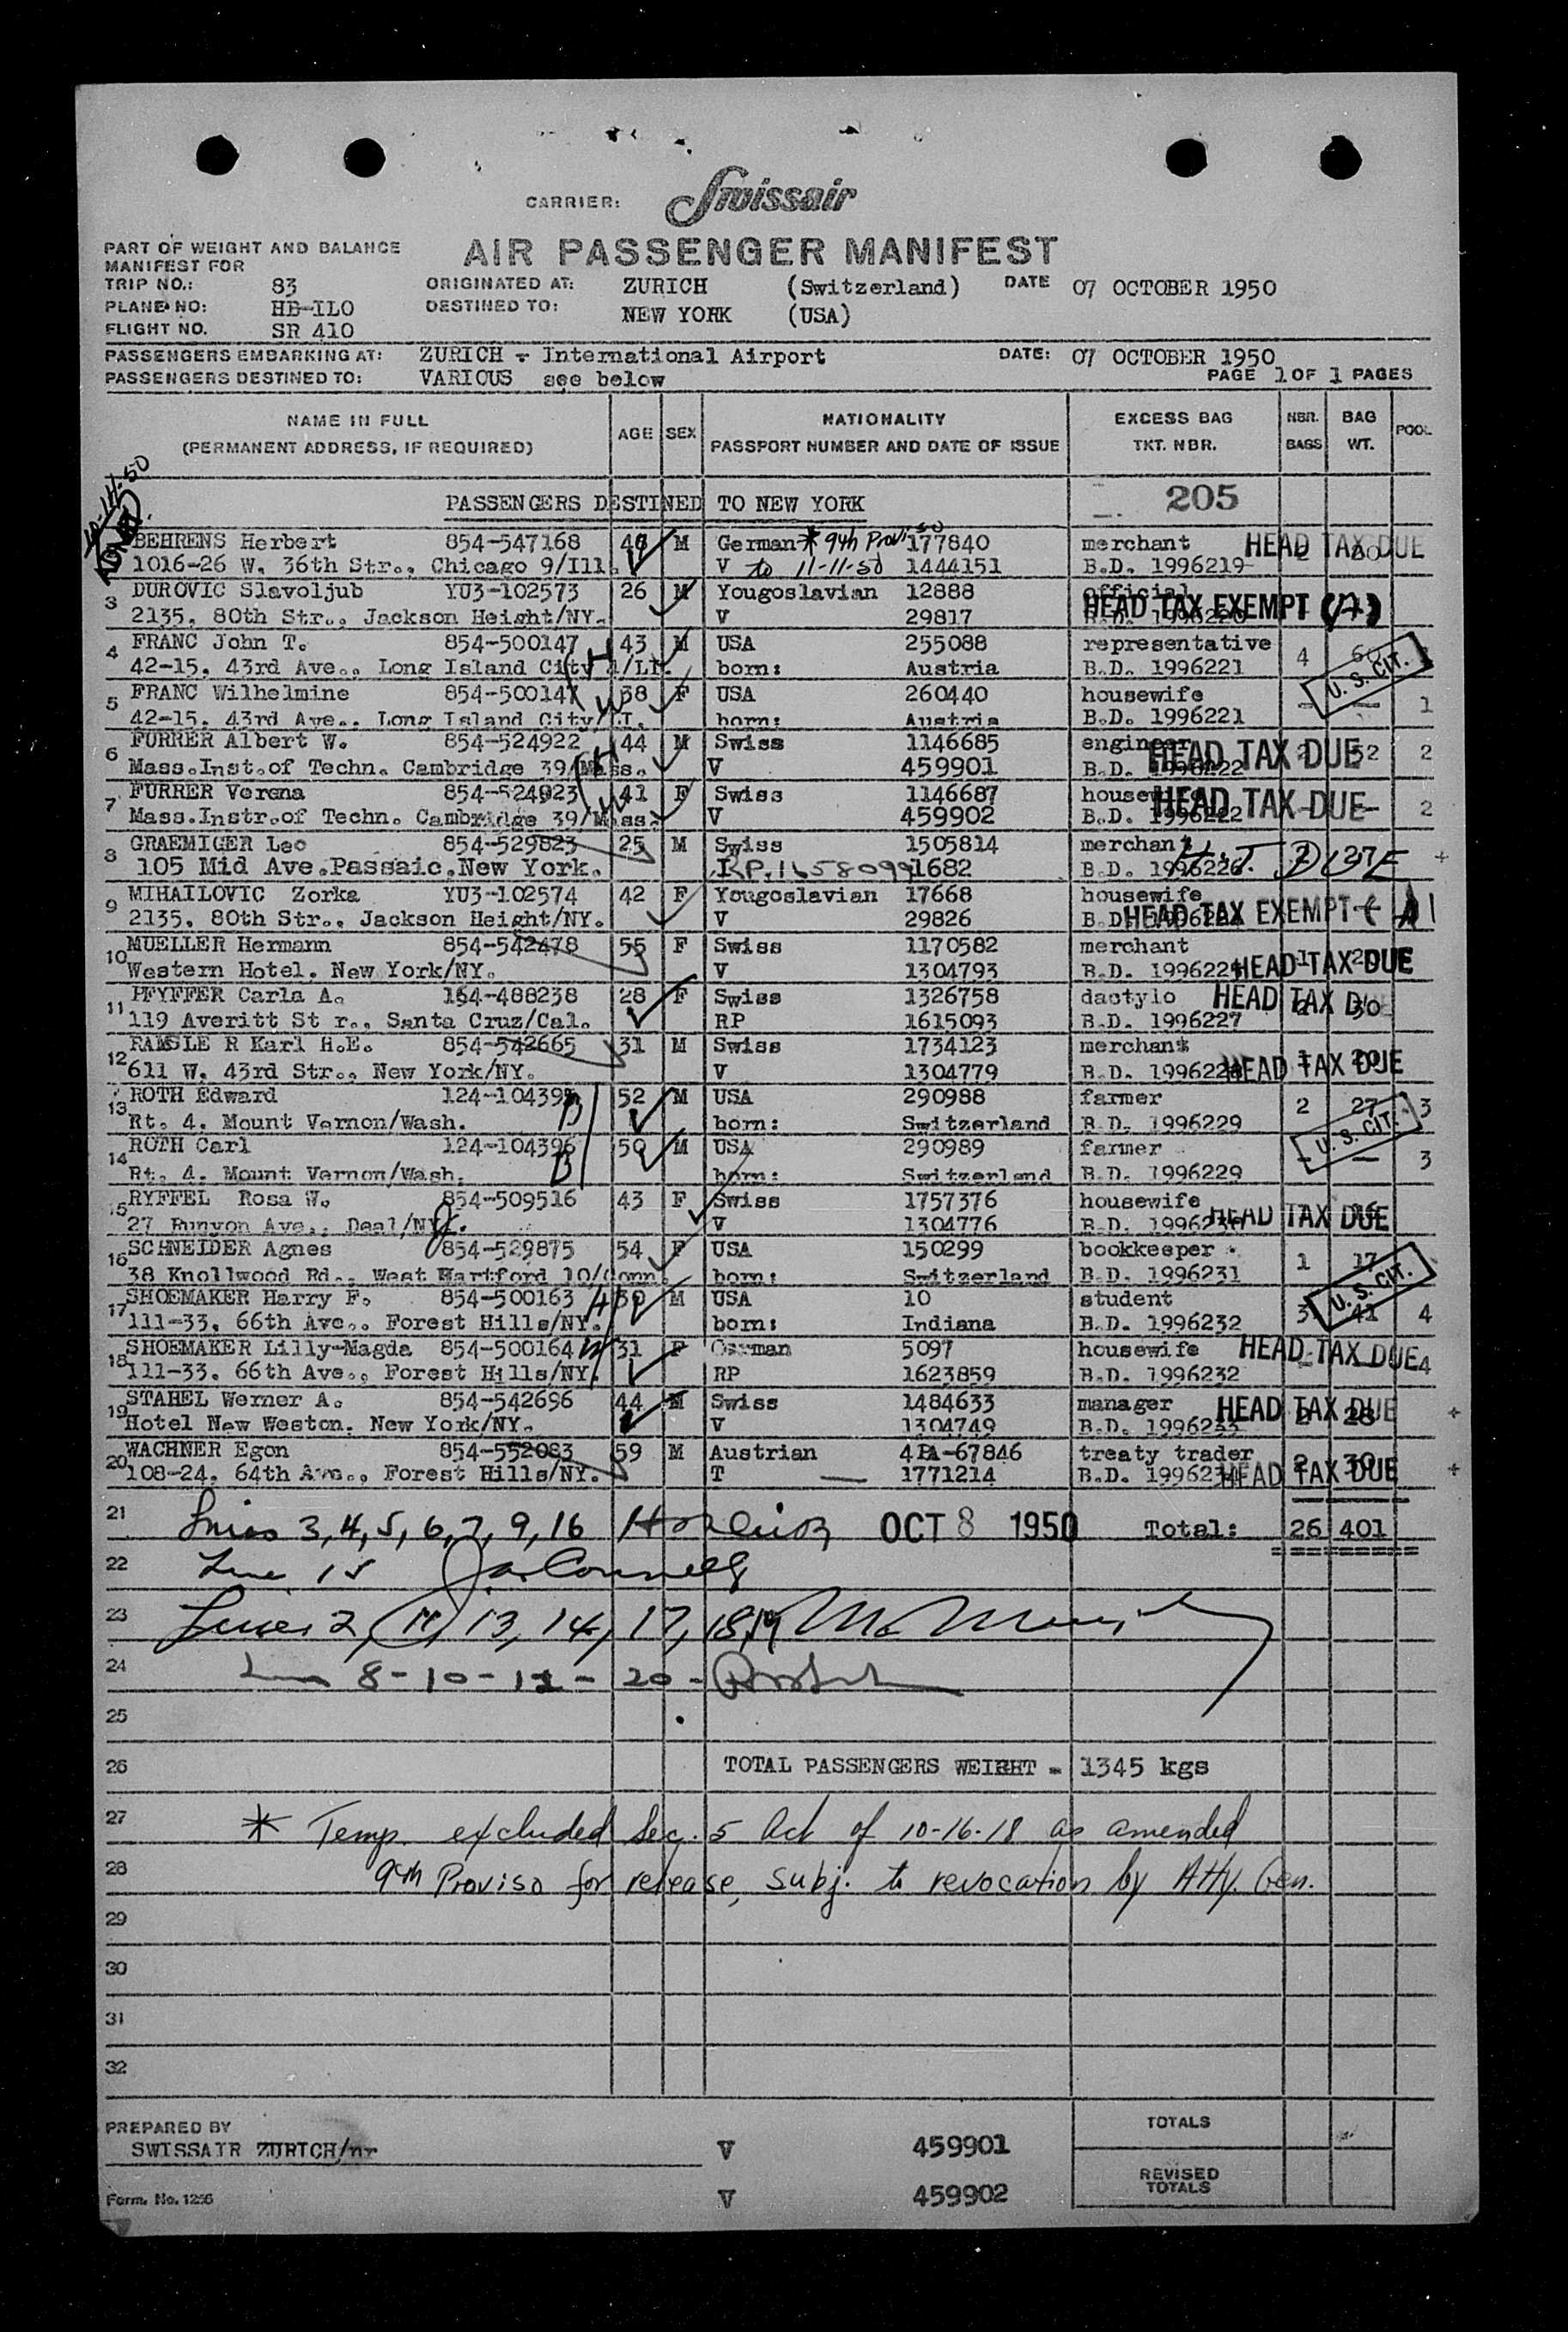 CARRIER: Swissair
PART OF WEIGHT AND BALANCE
MANIFEST FOR
AIR PASSENGER MANIFEST
TRIP NO.: 83 ORIGINATED AT: ZURICH (Switzerland) DATE 07 OCTOBER 1950
PLANE NO: HB-ILO DESTINED TO: NEW YORK (USA)
FLIGHT NO. SR 410
PASSENGERS EMBARKING AT: ZURICH - International Airport DATE: 07 OCTOBER 1950
PASSENGERS DESTINED TO: VARIOUS see below PAGE 1 OF 1 PAGES
NAME IN FULL AGE SEX NATIONALITY EXCESS BAG NBR. BAG POOL
(PERMANENT ADDRESS, IF REQUIRED) PASSPORT NUMBER AND DATE OF ISSUE TKT. NBR. BAGS WT.
PASSENGERS DESTINED TO NEW YORK 205
BEHRENS Herbert 854-547168 M German * 9th Proviso 177840 merchant HEAD TAX DUE
1016-26 W. 36th Str., Chicago 9/Ill. V to 11-11-50 1444151 B.D. 1996219
3 DUROVIC Slavoljub YU3-102573 26 M Yougoslavian 12888 official
2135, 80th Str., Jackson Height/NY. V 29817 HEAD TAX EXEMPT
4 FRANC John T. 854-500147 43 M USA 255088 representative 4
42-15, 43rd Ave., Long Island City 1/LI. born: Austria B.D. 1996221 U. S. CIT.
5 FRANC Wilhelmine 854-50014 38 F USA 260440 housewife - - 1
42-15. 43rd Ave., Long Island City/LI. born: Austria B.D. 1996221
6 FURRER Albert W. 854-524922 44 M Swiss 1146685 engineer HEAD TAX DUE 2
Mass.Inst.of Techn. Cambridge 39/Mass. V 459901 B.D. 1996222
7 FURRER Verena 854-524923 41 F Swiss 1146687 housewife HEAD TAX DUE 2
Mass.Instr.of Techn. Cambridge 39/Mass. V 459902 B.D. 1996222
8 GRAEMIGER Leo 854-529823 25 M Swiss 1505814 merchant H.T. DUE +
105 Mid Ave.Passaic.New York. RP. 1658099 1682 B.D. 1996226
9 MIHAILOVIC Zorka YU3-102574 42 F Yougoslavian 17668 housewife
2135, 80th Str., Jackson Height/NY. V 29826 B.D. HEAD TAX EXEMPT
10 MUELLER Hermann 854-542478 55 F Swiss 1170582 merchant
Western Hotel. New York/NY. V 1304793 B.D. HEAD TAX DUE
11 PFYFFER Carla A. 164-488238 28 F Swiss 1326758 dactylo HEAD TAX D
119 Averitt St r., Santa Cruz/Cal. RP 1615093 B.D. 1996227
12 Karl H.E. 854-542665 31 M Swiss 1734123 merchant
611 W. 43rd Str., New York/NY. V 1304779 B.D. HEAD TAX DUE
13 ROTH Edward 124-104395 52 M USA 290988 farmer 2 27 3
Rt. 4. Mount Vernon/Wash. born: Switzerland B.D. 1996229 U. S. CIT.
14 ROTH Carl 124-104396 50 M USA 290989 farmer - - 3
Rt. 4. Mount Vernon/Wash. born: Switzerland B.D. 1996229
15 RYFFEL Rosa W. 854-509516 43 F Swiss 1757376 housewife
27 Runyon Ave., Deal/NJ. V 1304776 B.D. HEAD TAX DUE
16 SCHNEIDER Agnes 854-529875 54 F USA 150299 bookkeeper 1 17
38 Knollwood Rd., West Hartford 10/Conn. born: Switzerland B.D. 1996231 U. S. CIT.
17 SHOEMAKER Harry F. 854-500163 H M USA 10 student 3 41 4
111-33, 66th Ave., Forest Hills/NY. born: Indiana B.D. 1996232
18 SHOEMAKER Lilly-Magda 854-500164 W 31 F German 5097 housewife HEAD TAX DUE 4
111-33. 66th Ave., Forest Hills/NY. RP 1623859 B.D. 1996232
19 STAHEL Werner A. 854-542696 44 M Swiss 1484633 manager HEAD TAX DUE +
Hotel New Weston. New York/NY. V 1304749 B.D. 1996233
20 WACHNER Egon 854-552083 59 M Austrian 4PA-67846 treaty trader
108-24. 64th Ave., Forest Hills/NY. T — 1771214 B.D. HEAD TAX DUE +
21 Lines 3, 4, 5, 6, 7, 9, 16 OCT 8 1950 Total: 26 401
22 Line 15
23 Lines 2, 11, 13, 14, 17, 18, 19
24 8-10-12-20-
25
26 TOTAL PASSENGERS WEIGHT = 1345 kgs
27 * Temp. excluded Sec. 5 Act of 10-16-18 as amended
28 9th Proviso for release, subj. to revocation by Atty. Gen.
29
30
31
32
PREPARED BY TOTALS
SWISSAIR ZURICH/nr V 459901
REVISED TOTALS
Form. No. 1256 V 459902